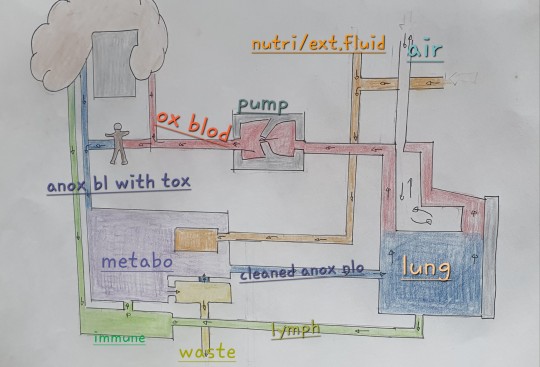 nutri/ext.fluid
air
pump
ox blod
anox bl with tox
metabo
cleaned anox blo
lung
immune
lymph
waste